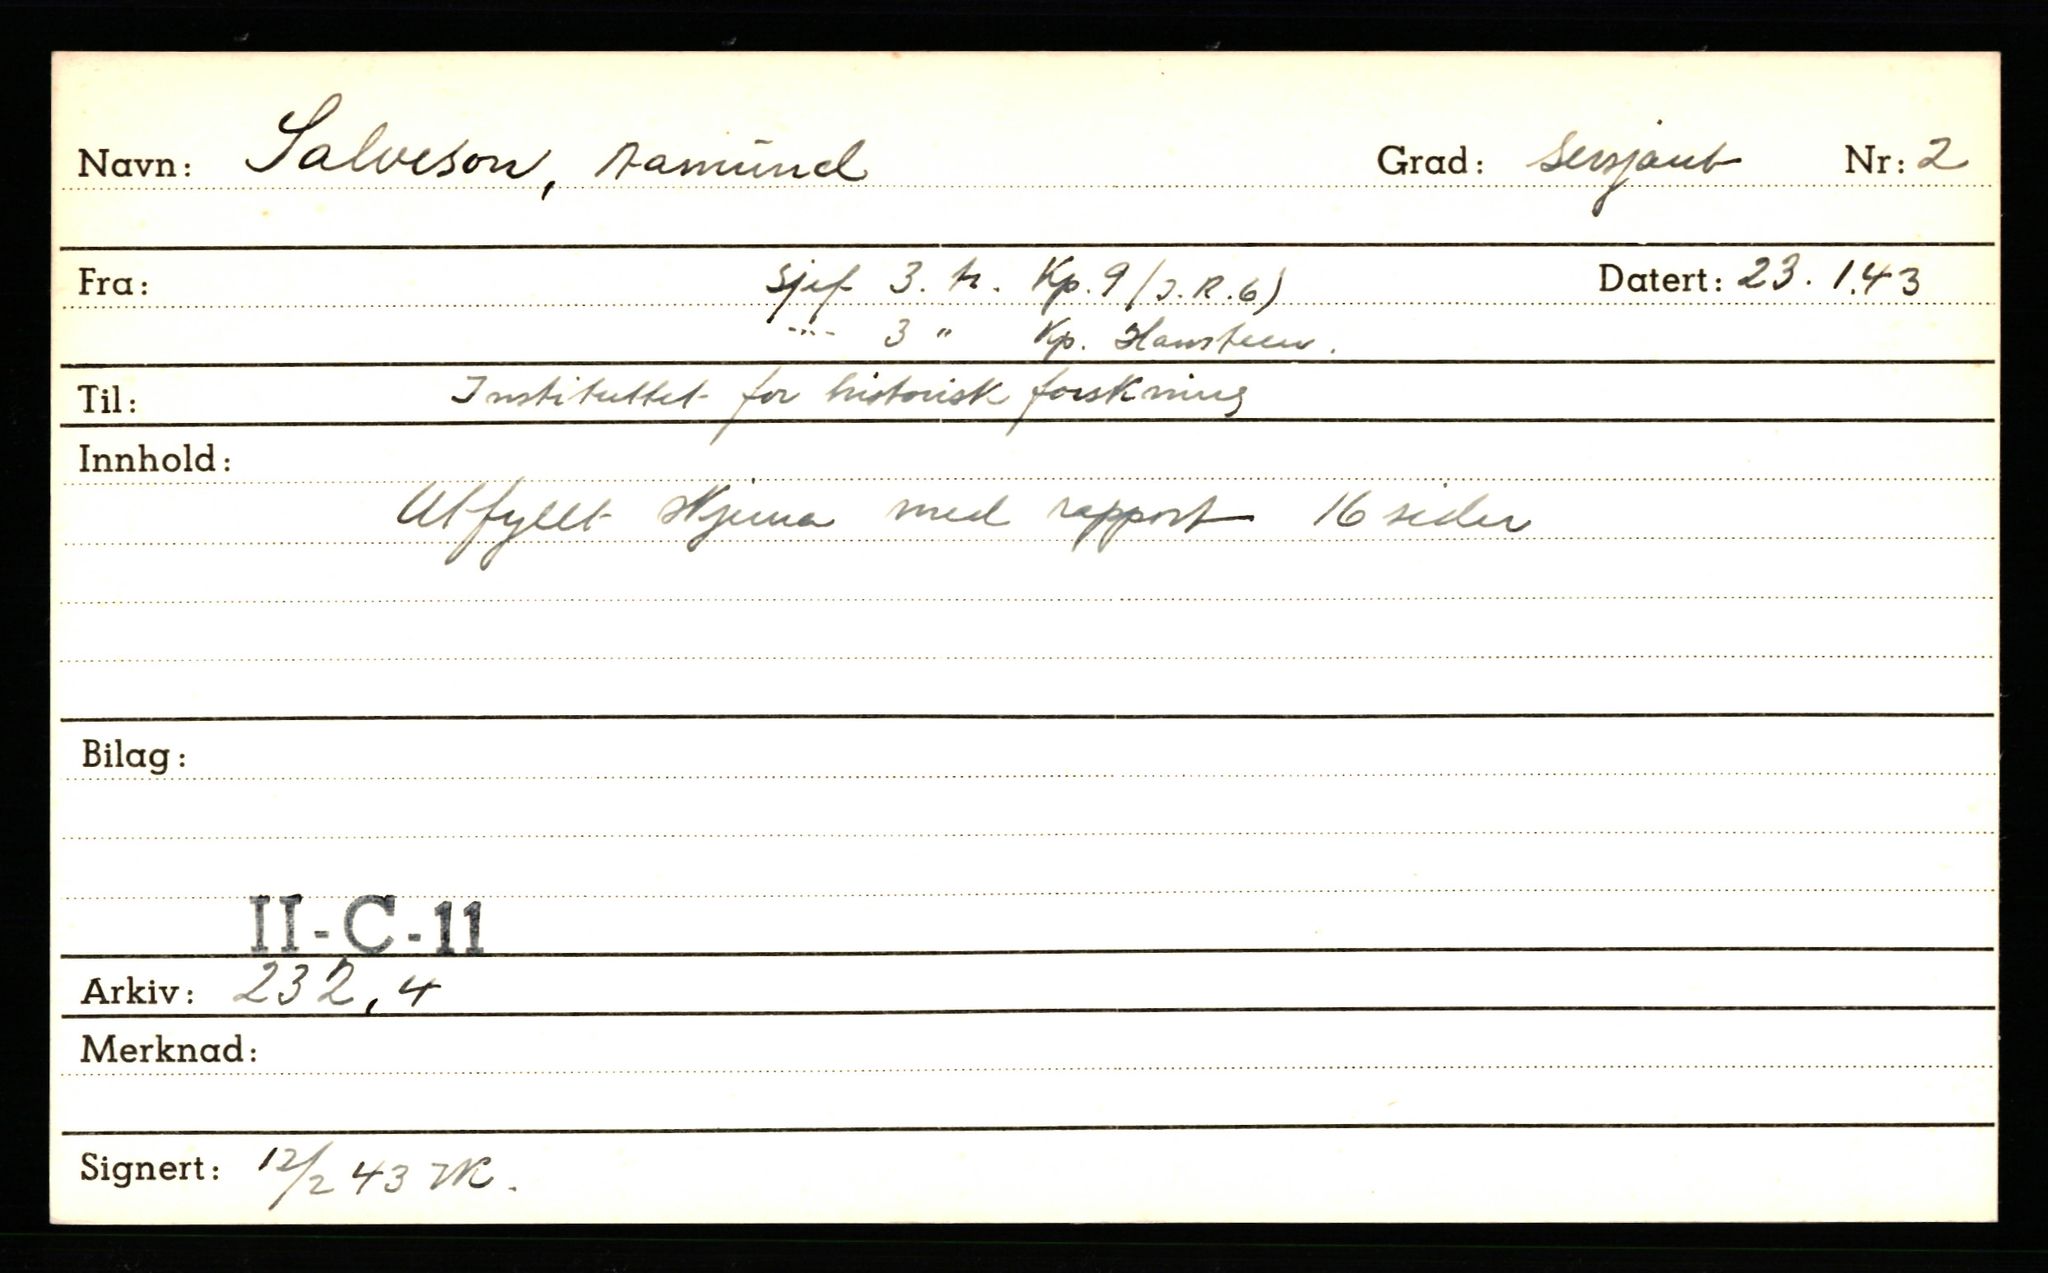 Navn: Salveson, Aamund Grad: Sersjant Nr: 2
Fra: Sjef 3. tr. Kp. 9 (J.R.6) Datert: 23.1.43
--"-- 3 " Kp. Hansteen.
Til: Instituttet for historisk forskning
Innhold:
Utfyllt skjema med rapport 16 sider
Bilag:
II-C-11
Arkiv: 232,4
Merknad:
Signert: 12/2 43